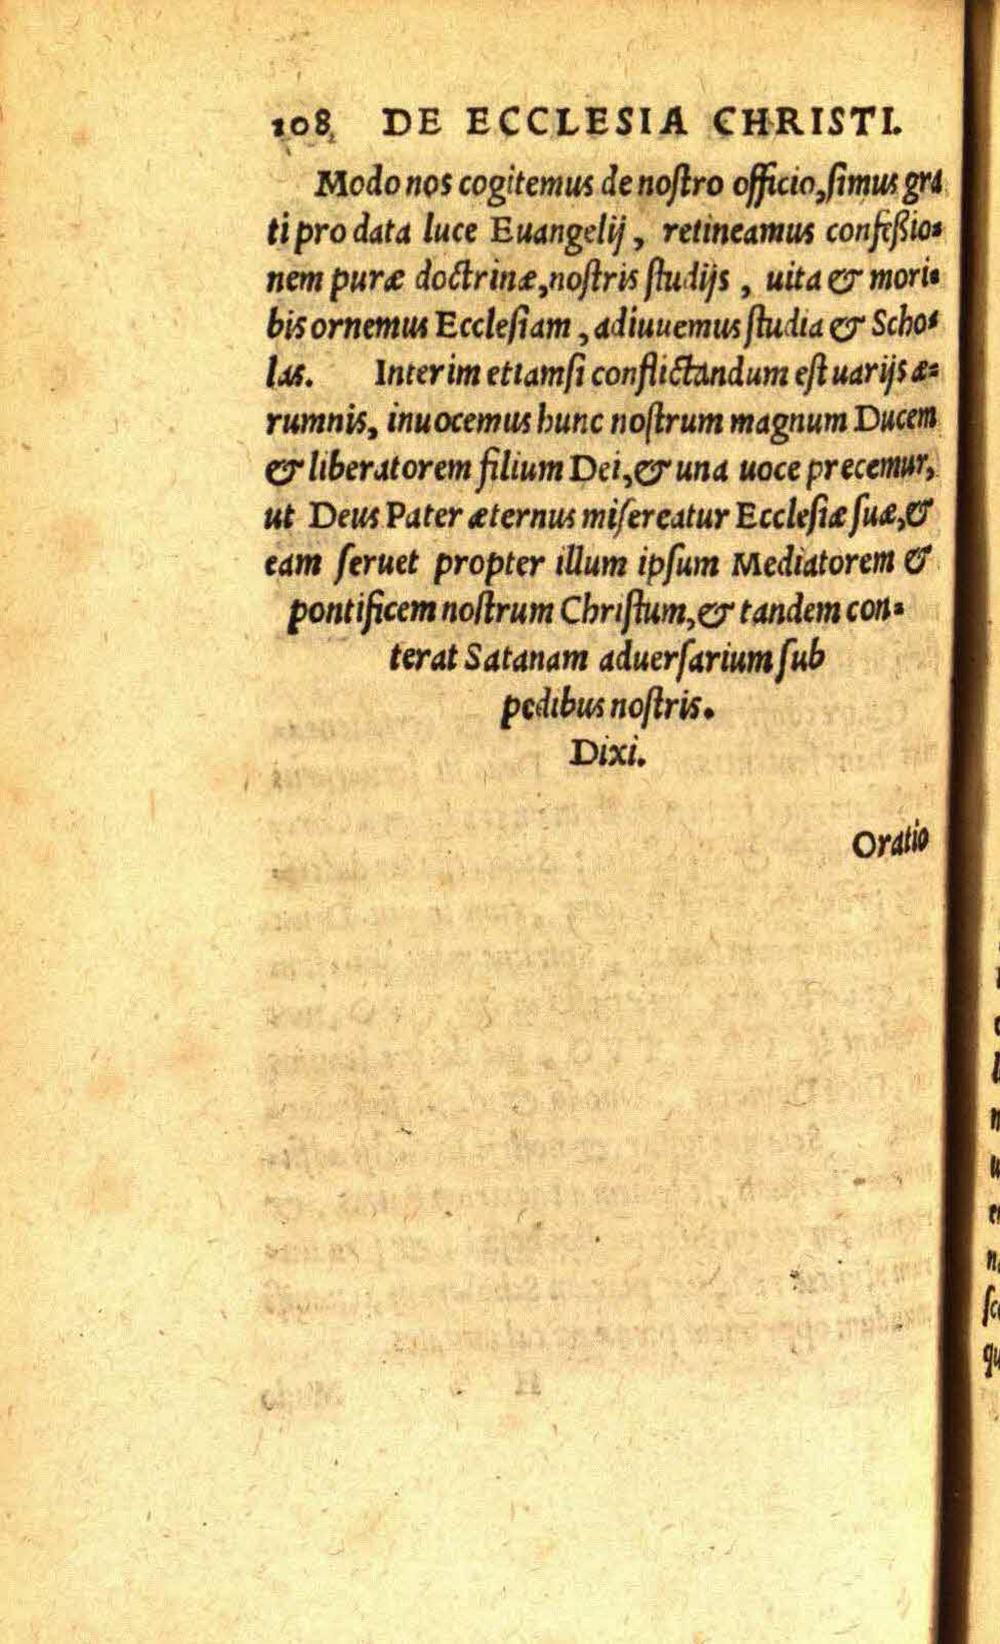 108 DE ECCLESIA CHRISTI.
Modo nos cogitemus de noſtro officio, ſimus gra
ti pro data luce Euangelij, retineamus confeßio-
nem puræ doctrinæ, noſtris ſtudijs, uita & mori-
bis ornemus Eccleſiam, adiuuemus ſtudia & Scho-
las. Interim etiamſi conflictandum eſt uarijs æ-
rumnis, inuocemus hunc noſtrum magnum Ducem
& liberatorem filium Dei, & una uoce precemur,
ut Deus Pater æternus miſereatur Eccleſiæ ſuæ, &
eam ſeruet propter illum ipſum Mediatorem &
pontificem noſtrum Chriſtum, & tandem con-
terat Satanam aduerſarium ſub
pedibus noſtris.
Dixi.
Oratio